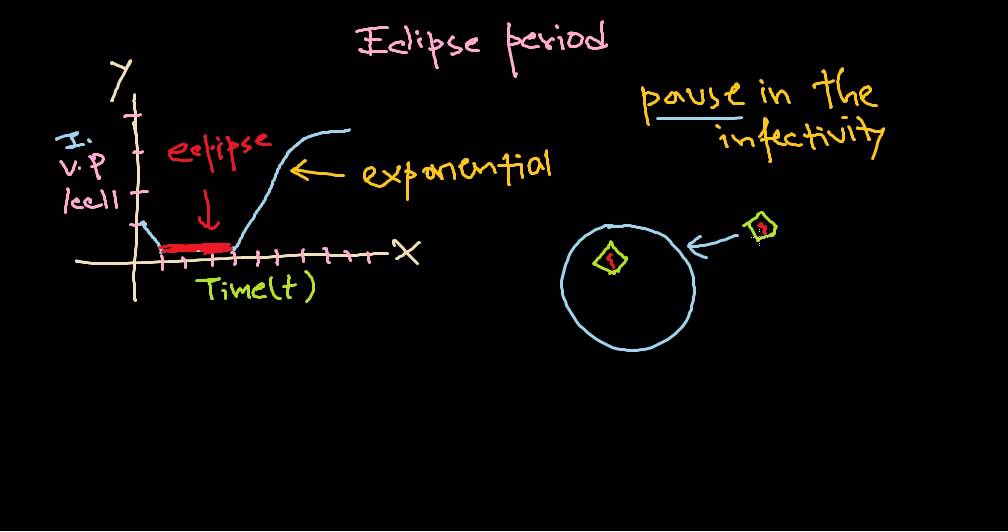 Eclipse period
Y
pause in the
infectivity
I.
V.P
/cell
eclipse
exponential
X
Time(t)